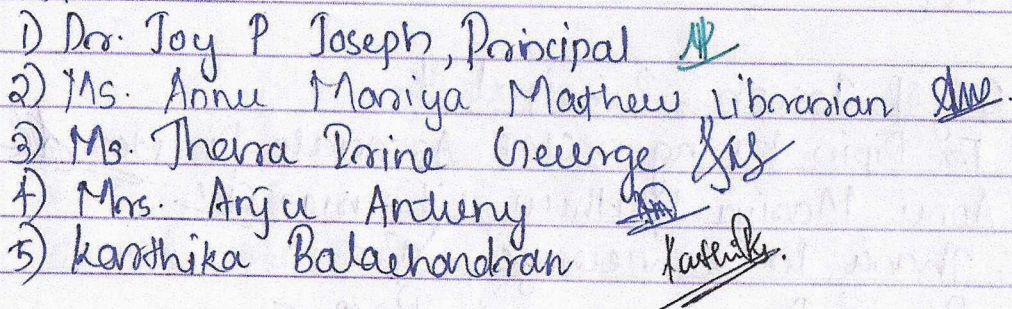 1) Dr. Joy P Joseph, Principal
2) Ms. Annu Mariya Mathew, Librarian
3) Ms. Thera Prine George
4) Mrs. Anju Antony
5) Karthika Balachandran Karthika.